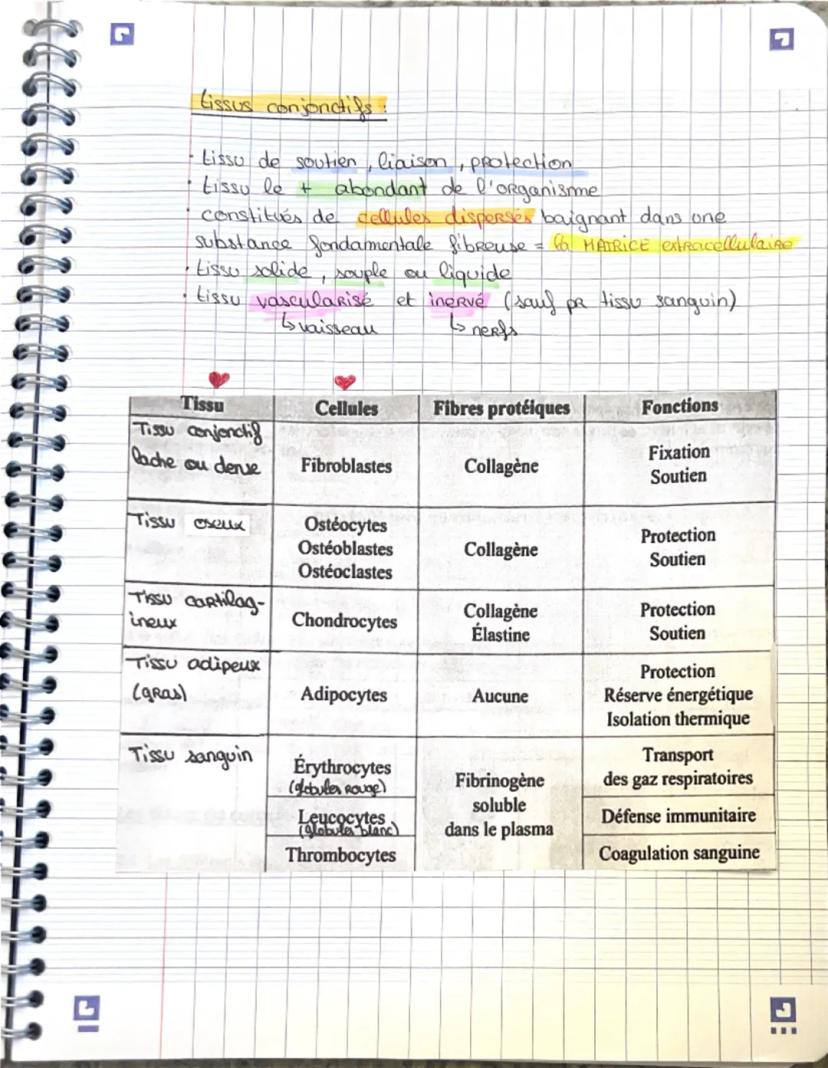 tissus conjonctifs :
· tissu de soutien, liaison, protection
· tissu le + abondant de l'organisme
· constitués de cellules dispersés baignant dans une
substance fondamentale fibreuse = la MATRICE extracellulaire
· tissu solide, souple ou liquide
· tissu vascularisé et inervé (sauf pr tissu sanguin)
↳ vaisseau ↳ nerfs
Tissu Cellules Fibres protéiques Fonctions
Tissu conjonctif
lache ou dense
Fibroblastes
Collagène
Fixation
Soutien
Tissu oseux
Ostéocytes
Ostéoblastes
Ostéoclastes
Collagène
Protection
Soutien
Tissu cartilag-
ineux
Chondrocytes
Collagène
Élastine
Protection
Soutien
Tissu adipeux
(gras)
Adipocytes
Aucune
Protection
Réserve énergétique
Isolation thermique
Tissu sanguin
Érythrocytes
(globules rouge)
Leucocytes
(globules blanc)
Thrombocytes
Fibrinogène
soluble
dans le plasma
Transport
des gaz respiratoires
Défense immunitaire
Coagulation sanguine